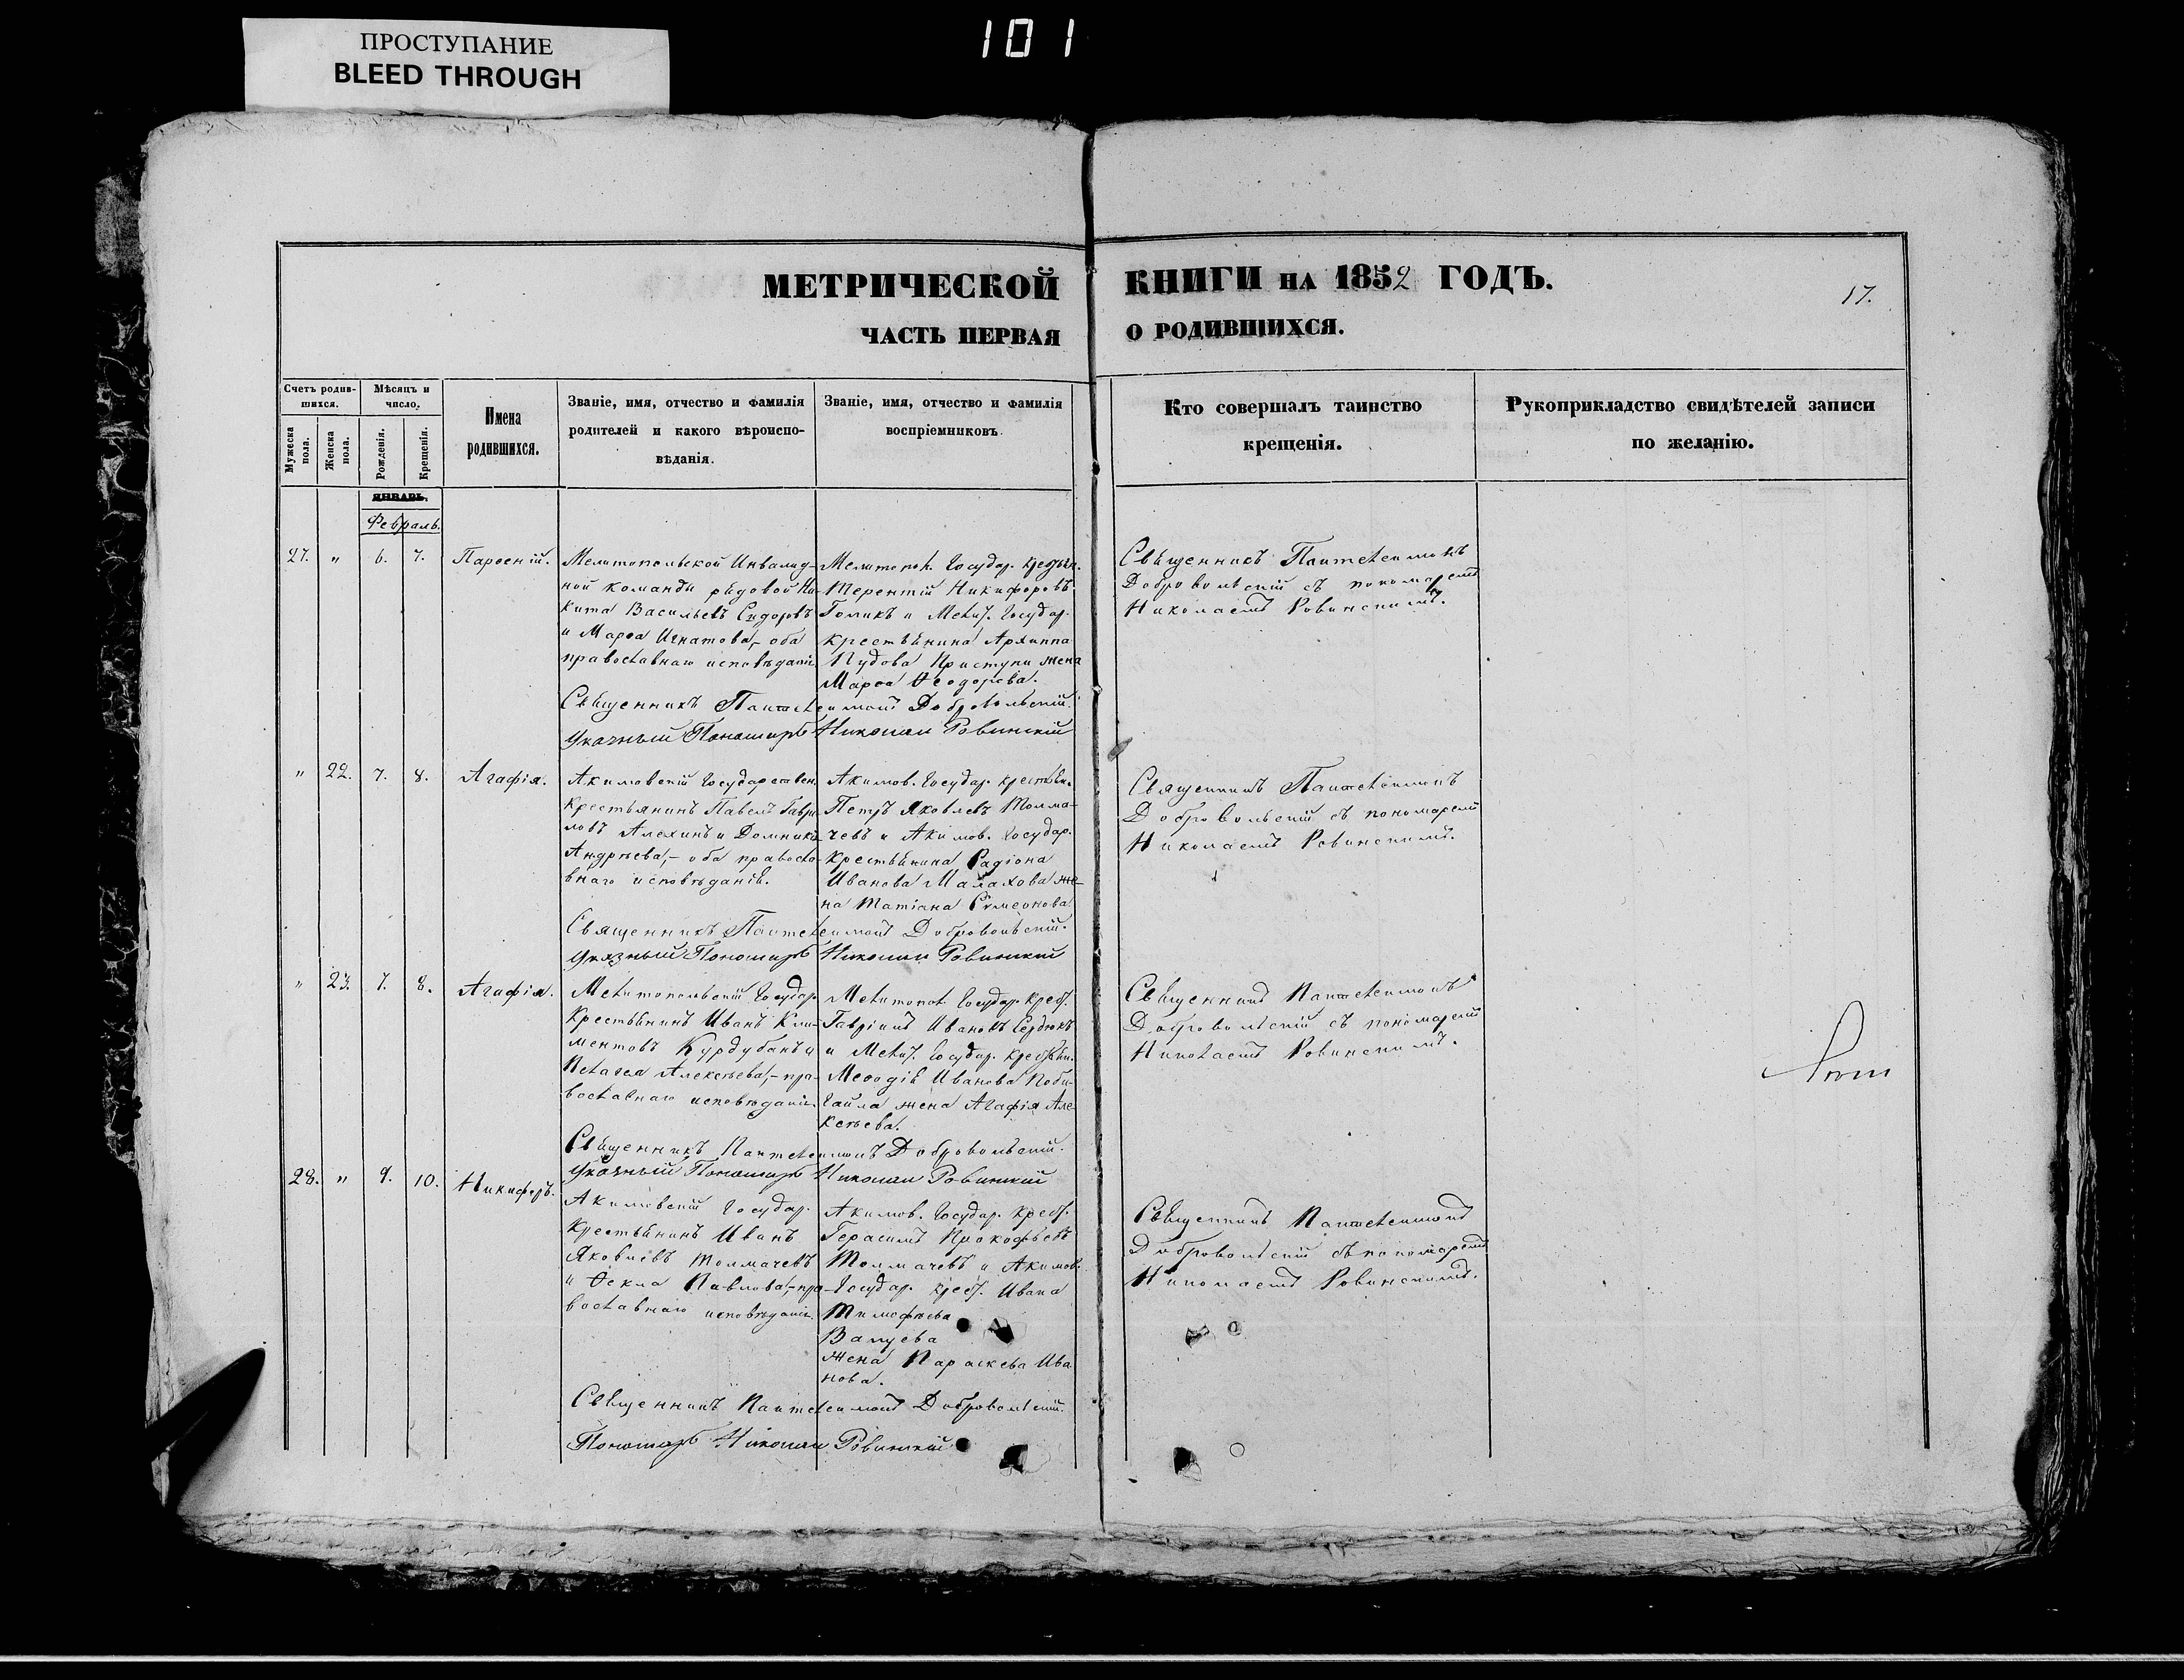 ПРОСТУПАНИЕ
BLEED THROUGH
101
МЕТРИЧЕСКОЙ КНИГИ НА 1852 ГОДЪ.
17.
ЧАСТЬ ПЕРВАЯ О РОДИВШИХСЯ.
Счетъ родив-
шихся.
Мужеска пола.
Женска пола.
Мѣсяцъ и
число.
Рожденія.
Крещенія.
Имена
родившихся.
Званіе, имя, отчество и фамилія
родителей и какого вѣроиспо-
вѣданія.
Званіе, имя, отчество и фамилія
воспріемниковъ.
Кто совершалъ таинство
крещенія.
Рукоприкладство свидѣтелей записи
по желанію.
ЯНВАРЬ.
Февраль.
27. " 6. 7. Парѳеній.
Мелитопольской Инвалид-
ной команды рядовой Ни-
кита Васильевъ Сидоровъ
и Марѳа Игнатова,- оба
православнаго исповѣданія.
Мелитопол. Государ. крестьян.
Терентій Никифоровъ
Голикъ и Мелит. Государ.
крестьянина Архиппа
Пудова Приступы жена
Марѳа Ѳеодорова.
Священникъ Пантелеимонъ
Добровольскій съ пономаремъ
Николаемъ Ровинскимъ.
Священникъ Пантелеимонъ Добровольскій.
Указный Пономарь Николай Ровинскій
" 22. 7. 8. Агафія.
Акимовскій Государствен.
крестьянинъ Павелъ Гаври-
ловъ Алехинъ и Домника
Андрѣева,- оба правосла-
внаго исповѣданія.
Акимов. Государ. крестьян.
Петръ Яковлевъ Толма-
чевъ и Акимов. Государ.
крестьянина Радіона
Иванова Малахова же-
на Татіана Сѵмеонова.
Священникъ Пантелеимонъ
Добровольскій съ пономаремъ
Николаемъ Ровинскимъ.
Священникъ Пантелеимонъ Добровольскій.
Указный Пономарь Николай Ровинскій
" 23. 7. 8. Агафія.
Мелитопольскій Государ.
крестьянинъ Иванъ Кли-
ментовъ Курдубанъ и
Пелагея Алексѣева,- пра-
вославнаго исповѣданія.
Мелитопол. Государ. крест.
Гавріилъ Ивановъ Сердюкъ
и Мелит. Государ. крестьян.
Меѳодія Иванова Поби-
гайла жена Агафія Але-
ксѣева.
Священникъ Пантелеимонъ
Добровольскій съ пономаремъ
Николаемъ Ровинскимъ.
Священникъ Пантелеимонъ Добровольскій.
Указный Пономарь Николай Ровинскій
28. " 9. 10. Никифоръ.
Акимовскій Государ.
крестьянинъ Иванъ
Яковлевъ Толмачевъ
и Ѳекла Павлова,- пра-
вославнаго исповѣданія.
Акимов. Государ. крест.
Герасимъ Прокофьевъ
Толмачевъ и Акимов.
Государ. крест. Ивана
Тимофѣева
жена Параскева Ива-
нова.
Священникъ Пантелеимонъ
Добровольскій съ пономаремъ
Николаемъ Ровинскимъ.
Священникъ Пантелеимонъ Добровольскій.
Пономарь Николай Ровинскій